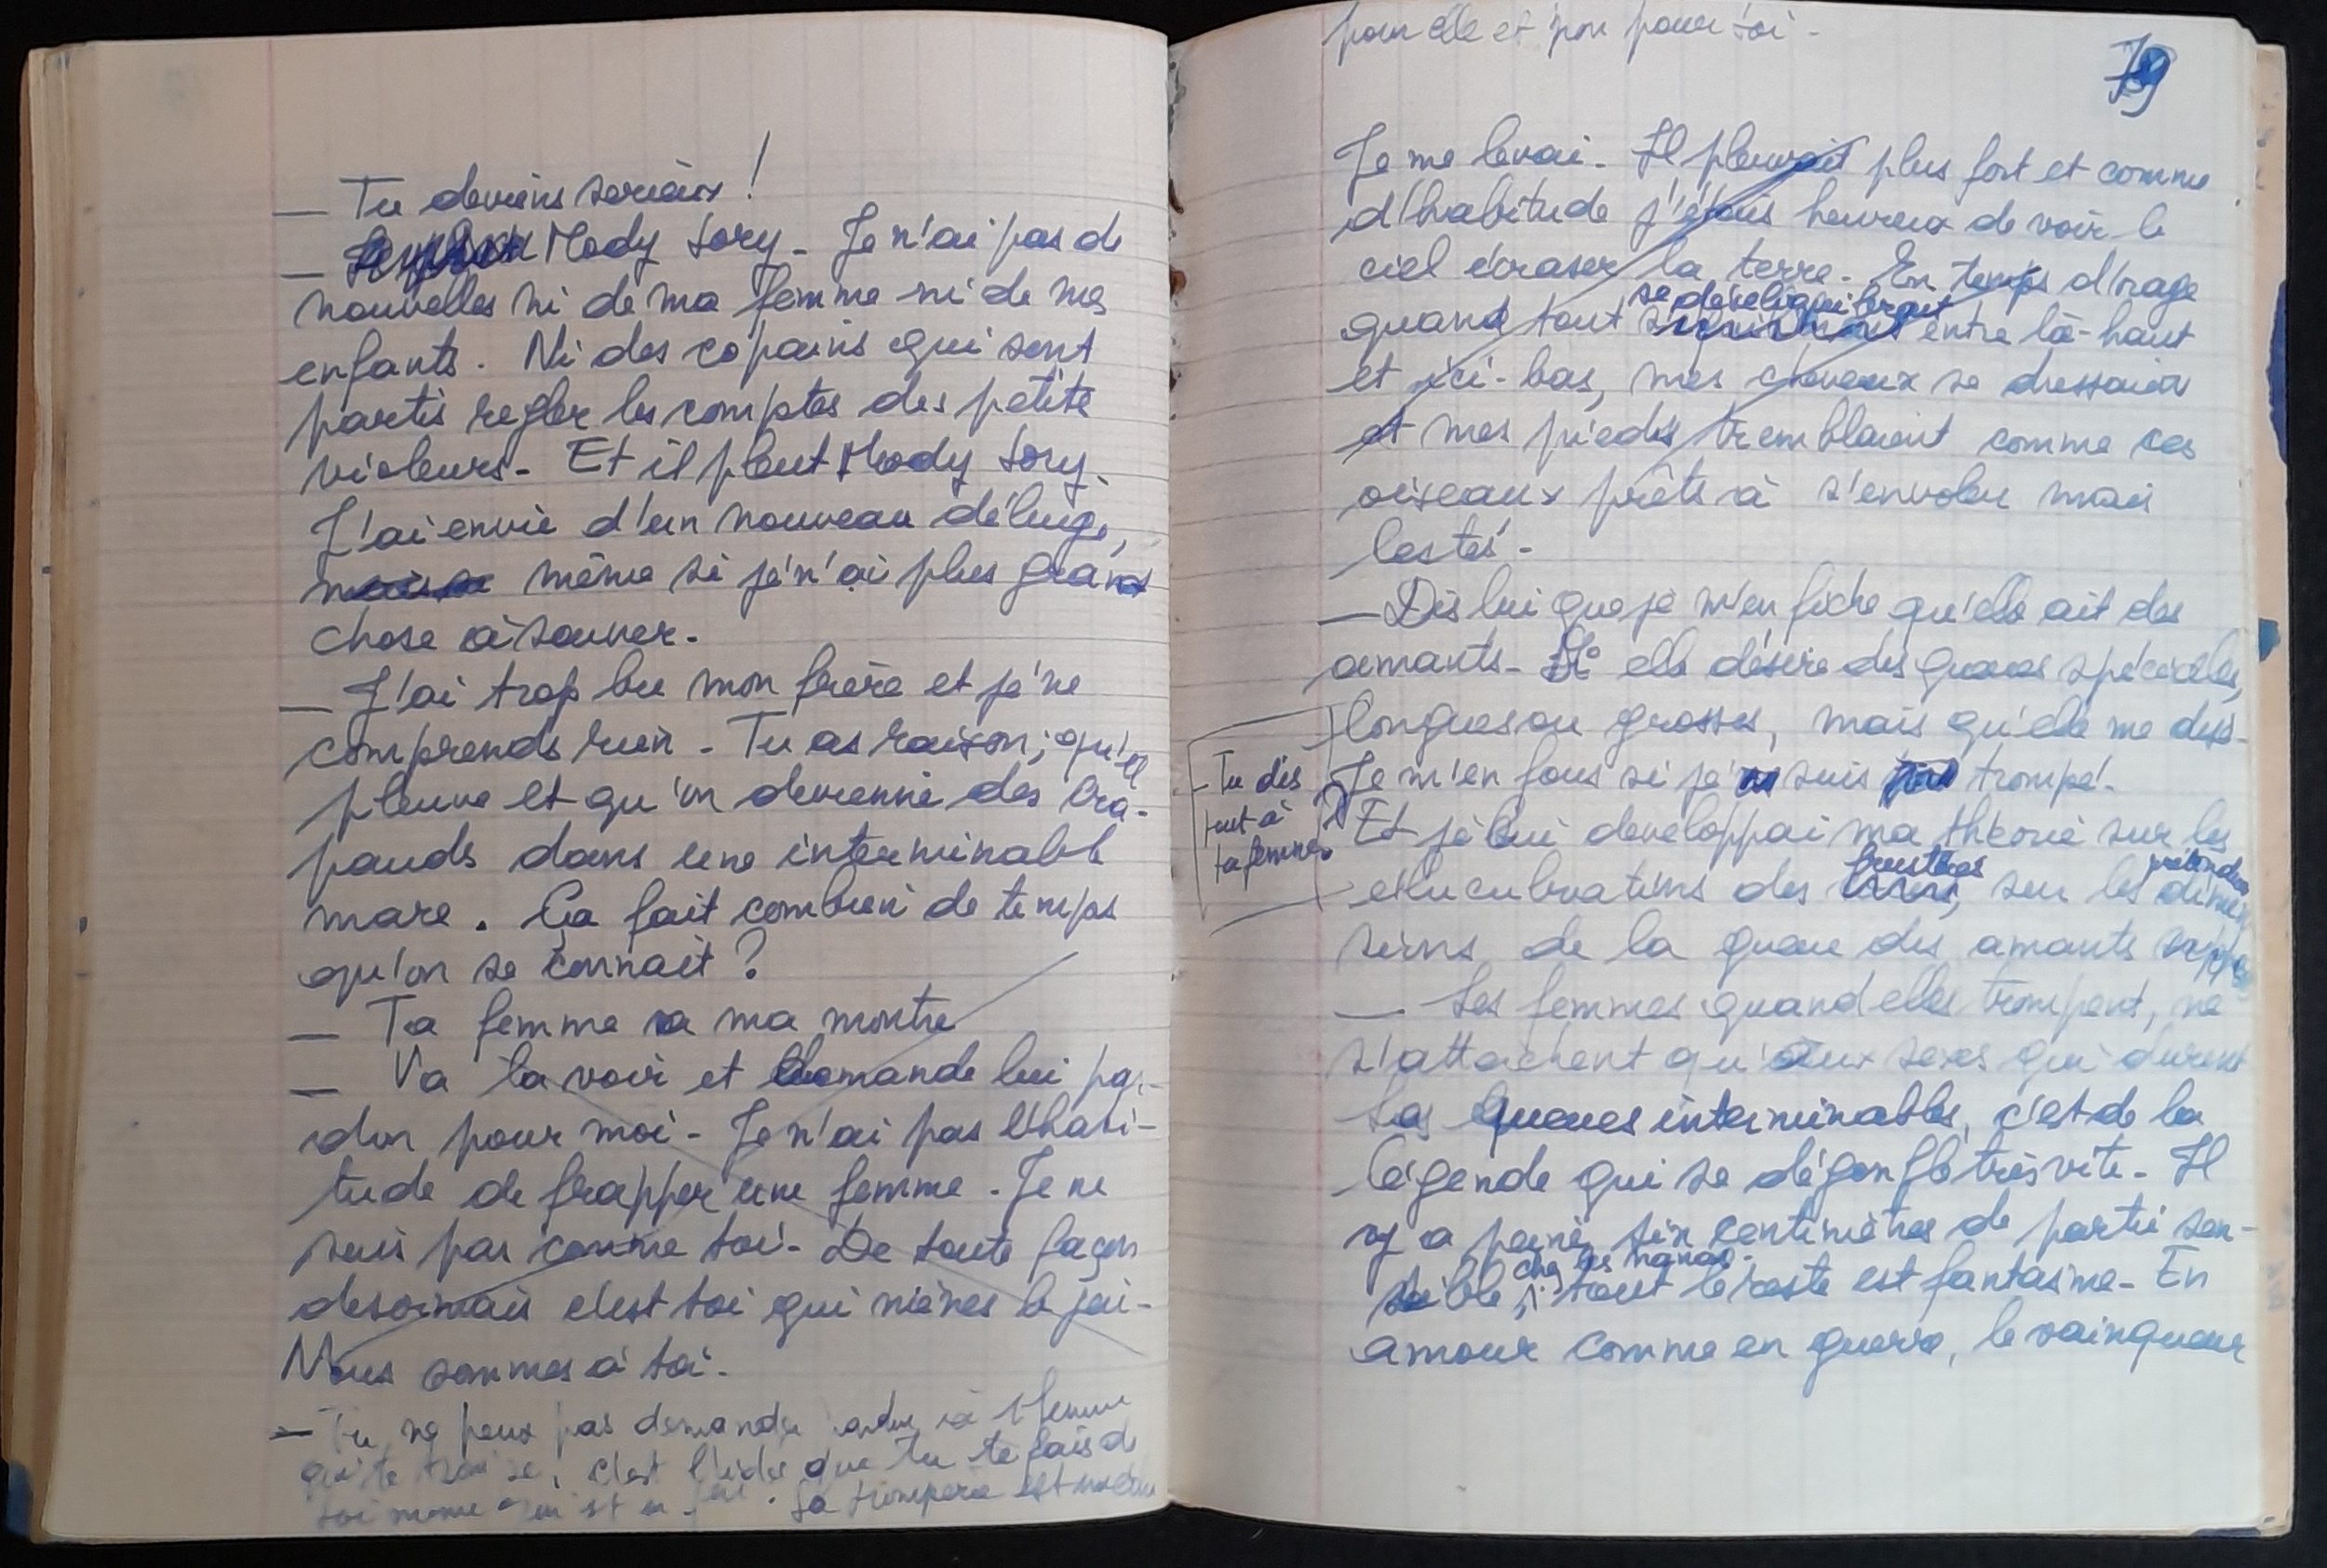 — Tu deviens serieux !
— Mody Sory - Je n'ai pas de
nouvelles ni de ma femme ni de mes
enfants. Ni des copains qui sont
partis regler les comptes des petits
violeurs - Et il pleut Mody Sory -
J'ai envie d'un nouveau déluge,
même si je n'ai plus grand
chose à sauver.
— J'ai trop bu mon frère et je ne
comprends rien - Tu as raison ; qu'il
pleuve et qu'on devienne des cra-
pauds dans une interminable
mare. Ça fait combien de temps
qu'on se connait ?
— Ta femme a ma montre
— Va la voir et demande lui par-
don pour moi - Je n'ai pas l'habi-
tude de frapper une femme - Je ne
suis pas comme toi - De toute façon
desormais c'est toi qui mènes le jeu -
Nous sommes à toi -
— Tu ne peux pas demander à 1 femme
qui te , c'est l'idée que tu te fais d
toi meme qui est en jeu . La tromperie est
pour elle et non pour toi -
79
Je me levai - Il pleuvait plus fort et comme
d'habitude j'étais heureux de voir le
ciel écraser la terre - En temps d'orage
quand tout se déséquilibrait entre là-haut
et ici-bas, mes cheveux se dressaient
et mes pieds tremblaient comme ces
oiseaux prêts à s'envoler mais
lestés -
— Dis lui que je m'en fiche qu'elle ait des
amants - Si elle désire des queues spéciales,
longues ou grosses, mais qu'elle me dise -
Je m'en fous si je suis trompé -
- Tu dis
tout à
ta femme ?
Et je lui developpai ma théorie sur les
elucubrations des frustrées, sur les prétendues dimen
sions de la queue des amants
— Les femmes quand elles trompent, ne
s'attachent qu'aux sexes qui durent
Les queues interminables, c'est de la
légende qui se dégonfle très vite - Il
y a à peine six centimètres de partie sen-
sible chez les nanas, tout le reste est fantasme - En
amour comme en guerre, le vainqueur